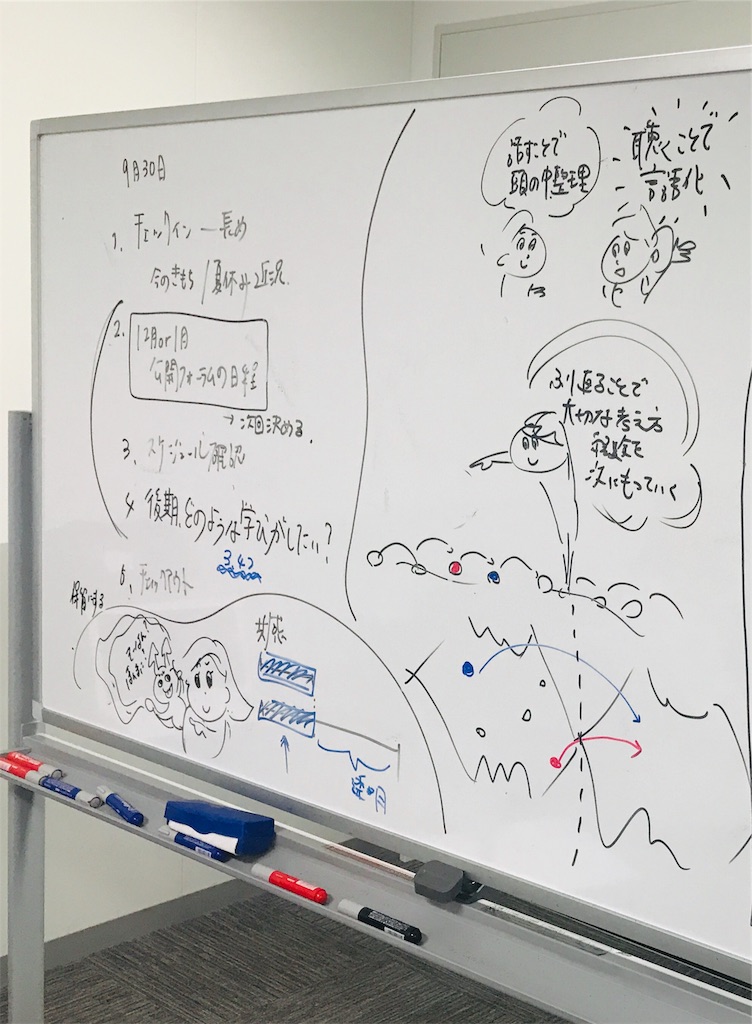 9月30日
1. チェックイン ー 長め
今のきもち / 夏休み近況
2. 12月or1月
公開フォーラムの日程
→ 次回決める.
3. スケジュール確認
4 後期、どのような学びがしたい?
3.4つ
チェックアウト
保留にする
透明
話すことで
頭の中整理
聴くことで
言語化
ふり返ることで
大切な考え方
経験を
次にもっていく